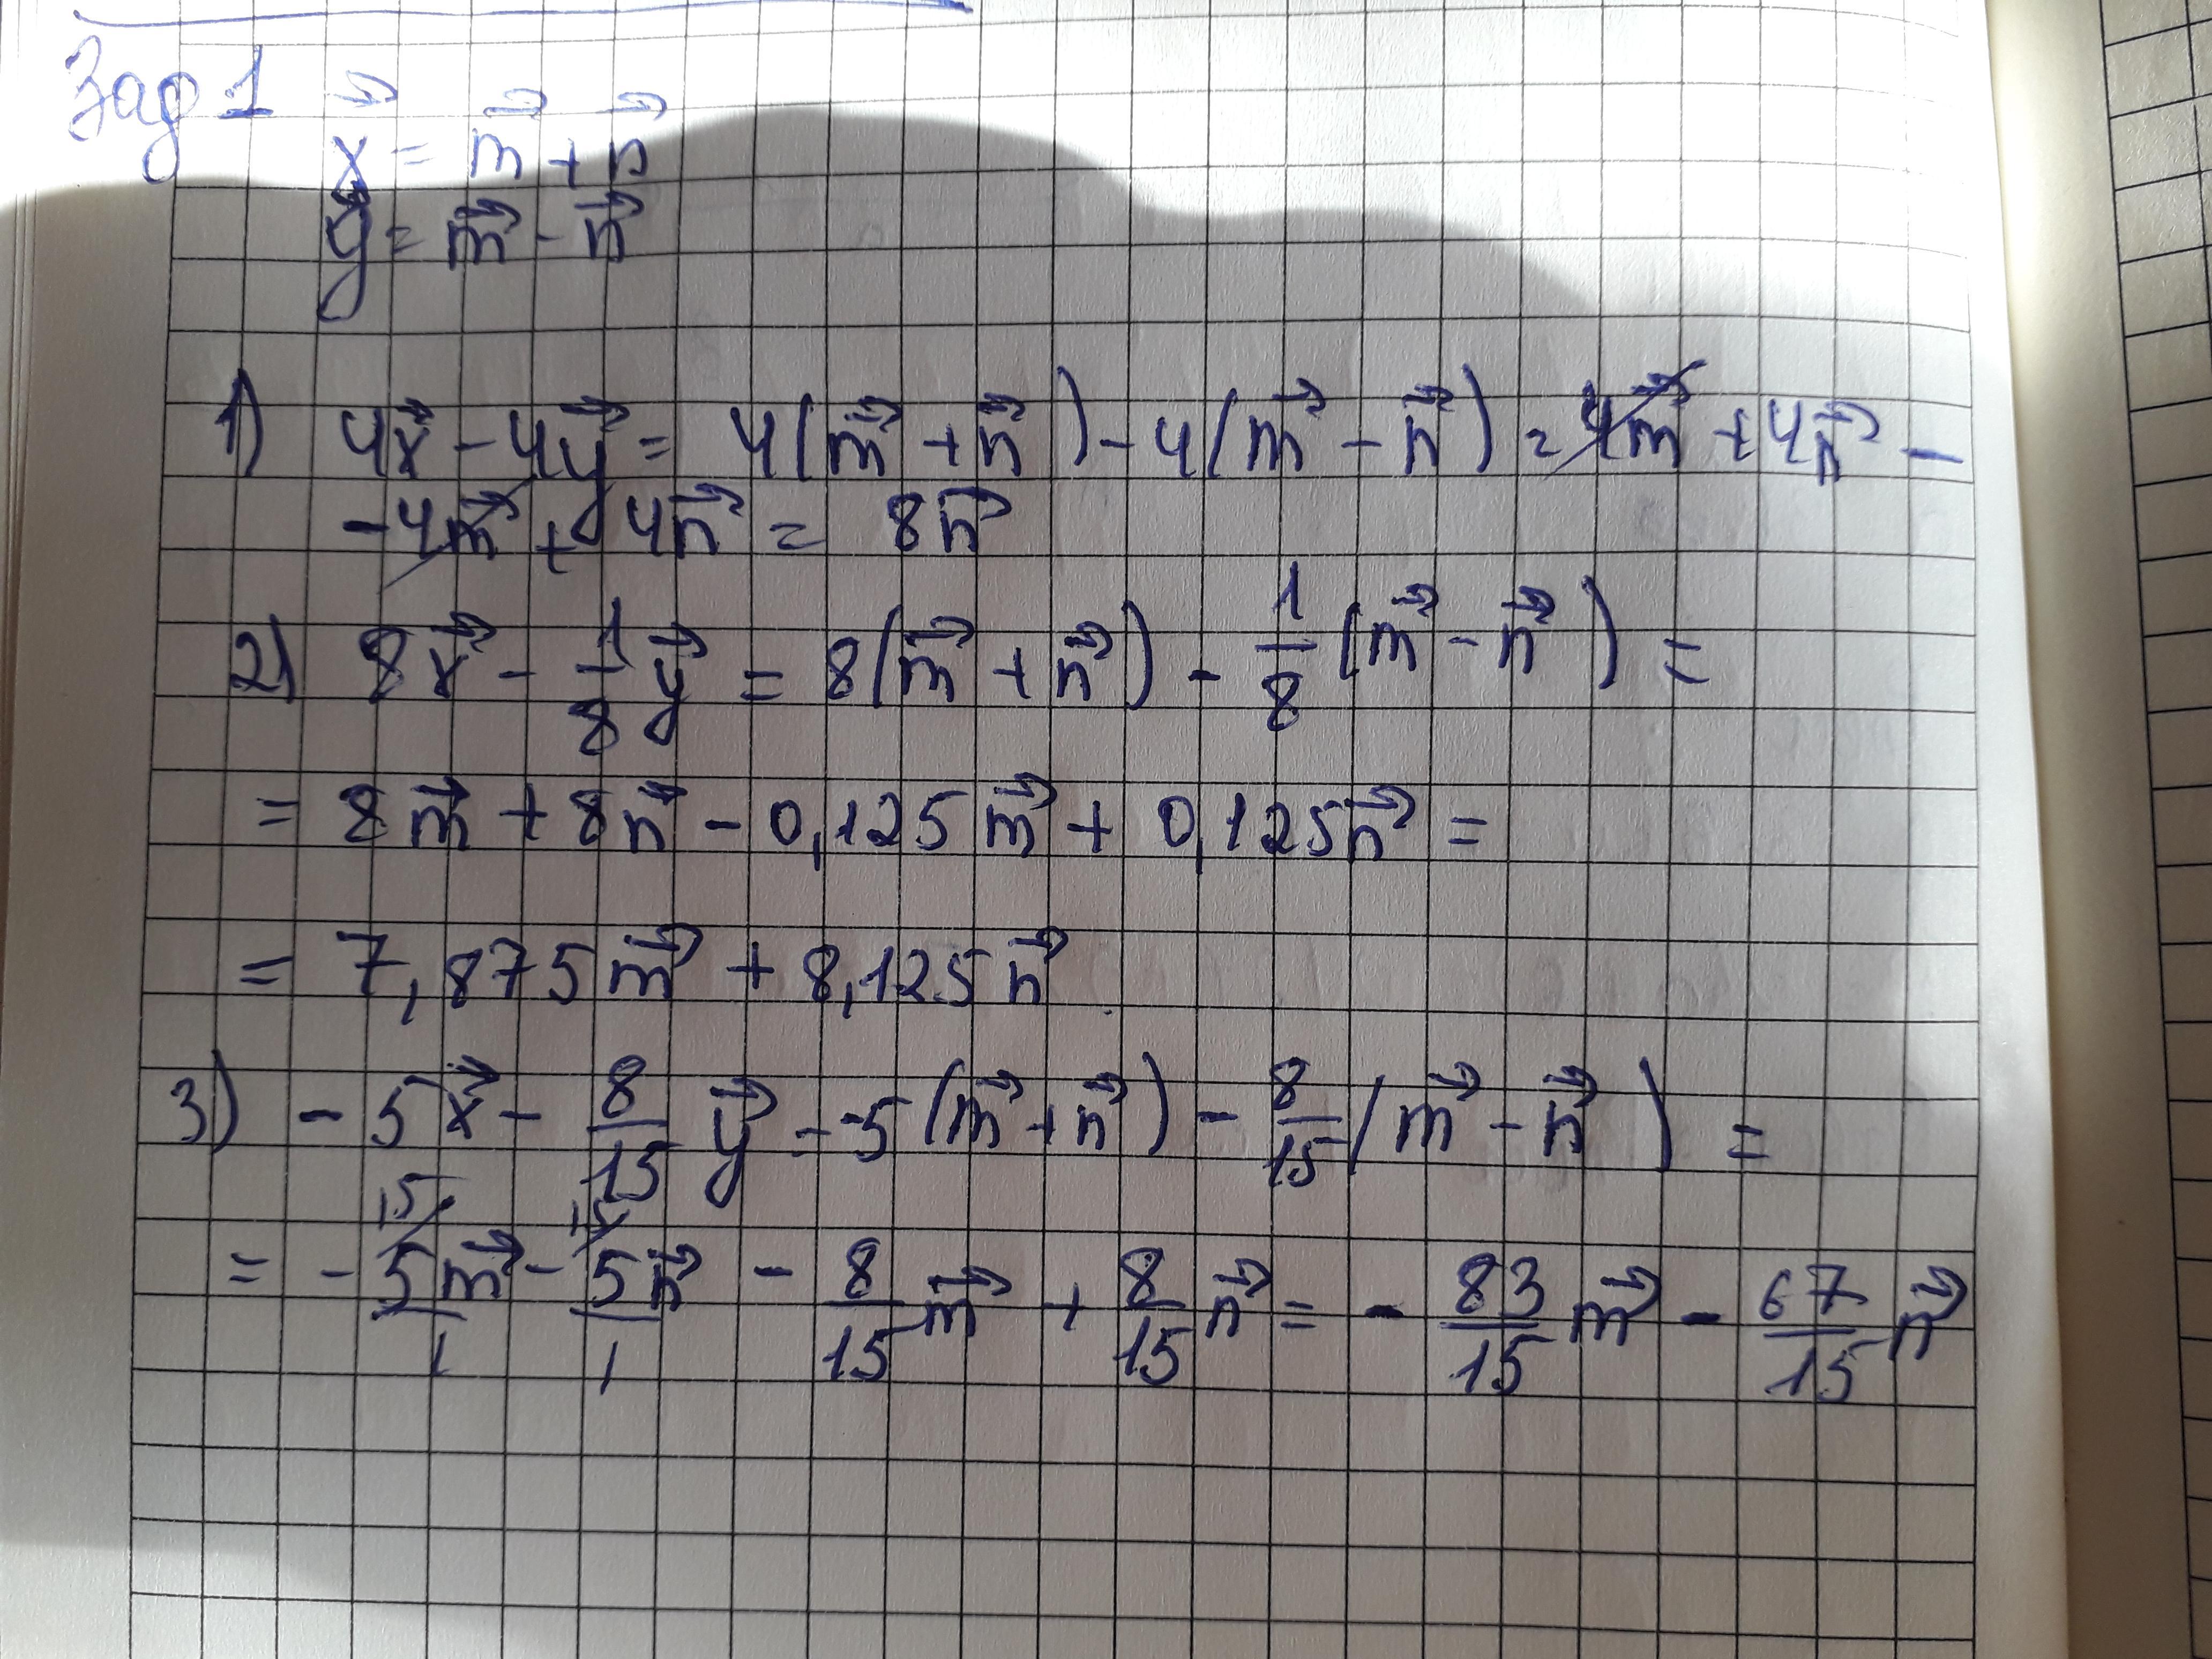 Зад 1
x⃗ = m⃗ + n⃗
y⃗ = m⃗ - n⃗
1) 4x⃗ - 4y⃗ = 4(m⃗ + n⃗) - 4(m⃗ - n⃗) = 4m⃗ + 4n⃗ -
- 4m⃗ + 4n⃗ = 8n⃗
2) 8x⃗ - 1/8 y⃗ = 8(m⃗ + n⃗) - 1/8 (m⃗ - n⃗) =
= 8m⃗ + 8n⃗ - 0,125m⃗ + 0,125n⃗ =
= 7,875m⃗ + 8,125n⃗
3) - 5x⃗ - 8/15 y⃗ = -5(m⃗ + n⃗) - 8/15 (m⃗ - n⃗) =
15 15
= - 5/1 m⃗ - 5/1 n⃗ - 8/15 m⃗ + 8/15 n⃗ = - 83/15 m⃗ - 67/15 n⃗